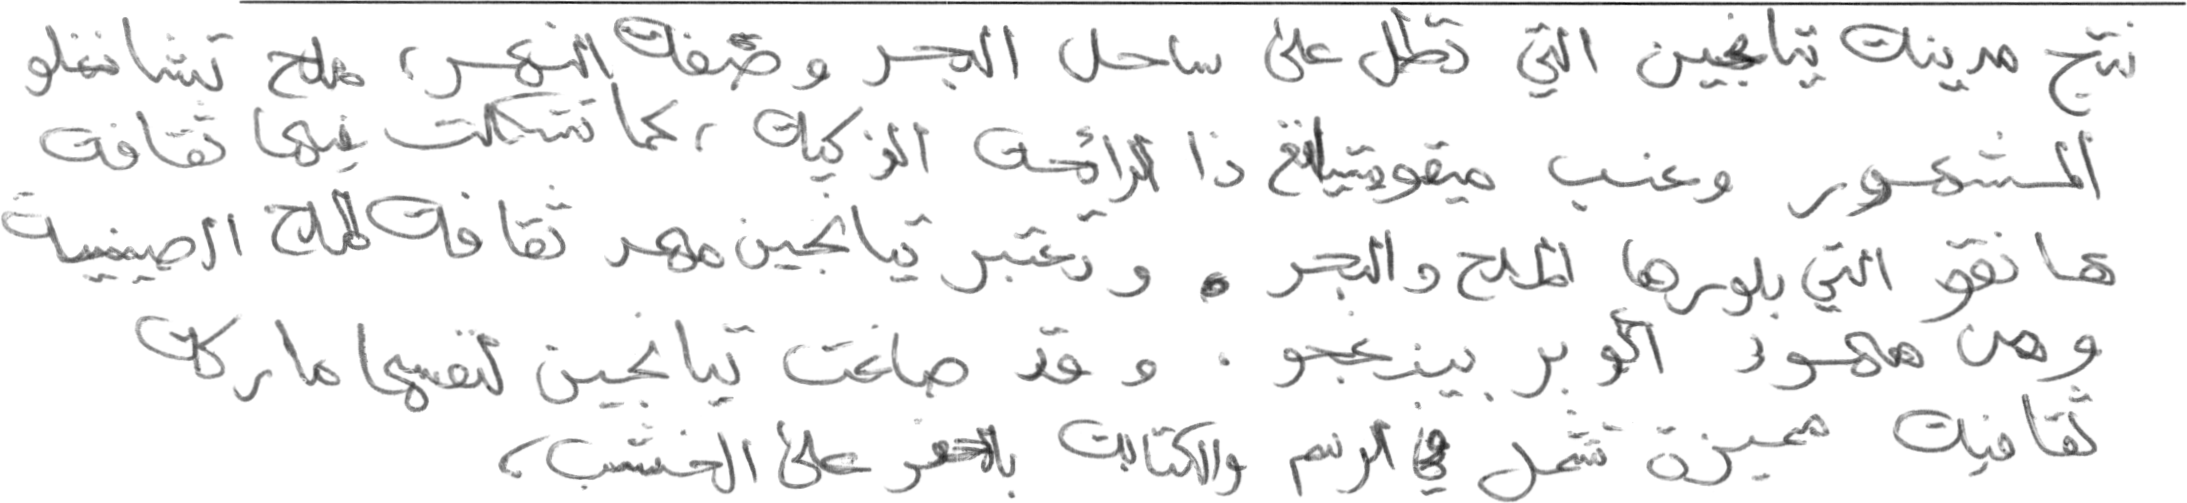 تنتج مدينة تيانجين التي تطل على ساحل البحر وضفة النهر، ملح تشانغلو
المشهور وعنب ذا الرائحة الزكية، كما تشكلت فيها ثقافة
هانقو التي بلورها الملح والبحر. وتعتبر تيانجين مهد ثقافة الملح الصينية
ومن مهود أكوبر بينغجو. وقد صاغت تيانجين لنفسها ماركة
ثقافية مميزة تشمل في الرسم والكتابة بالحفر على الخشب،